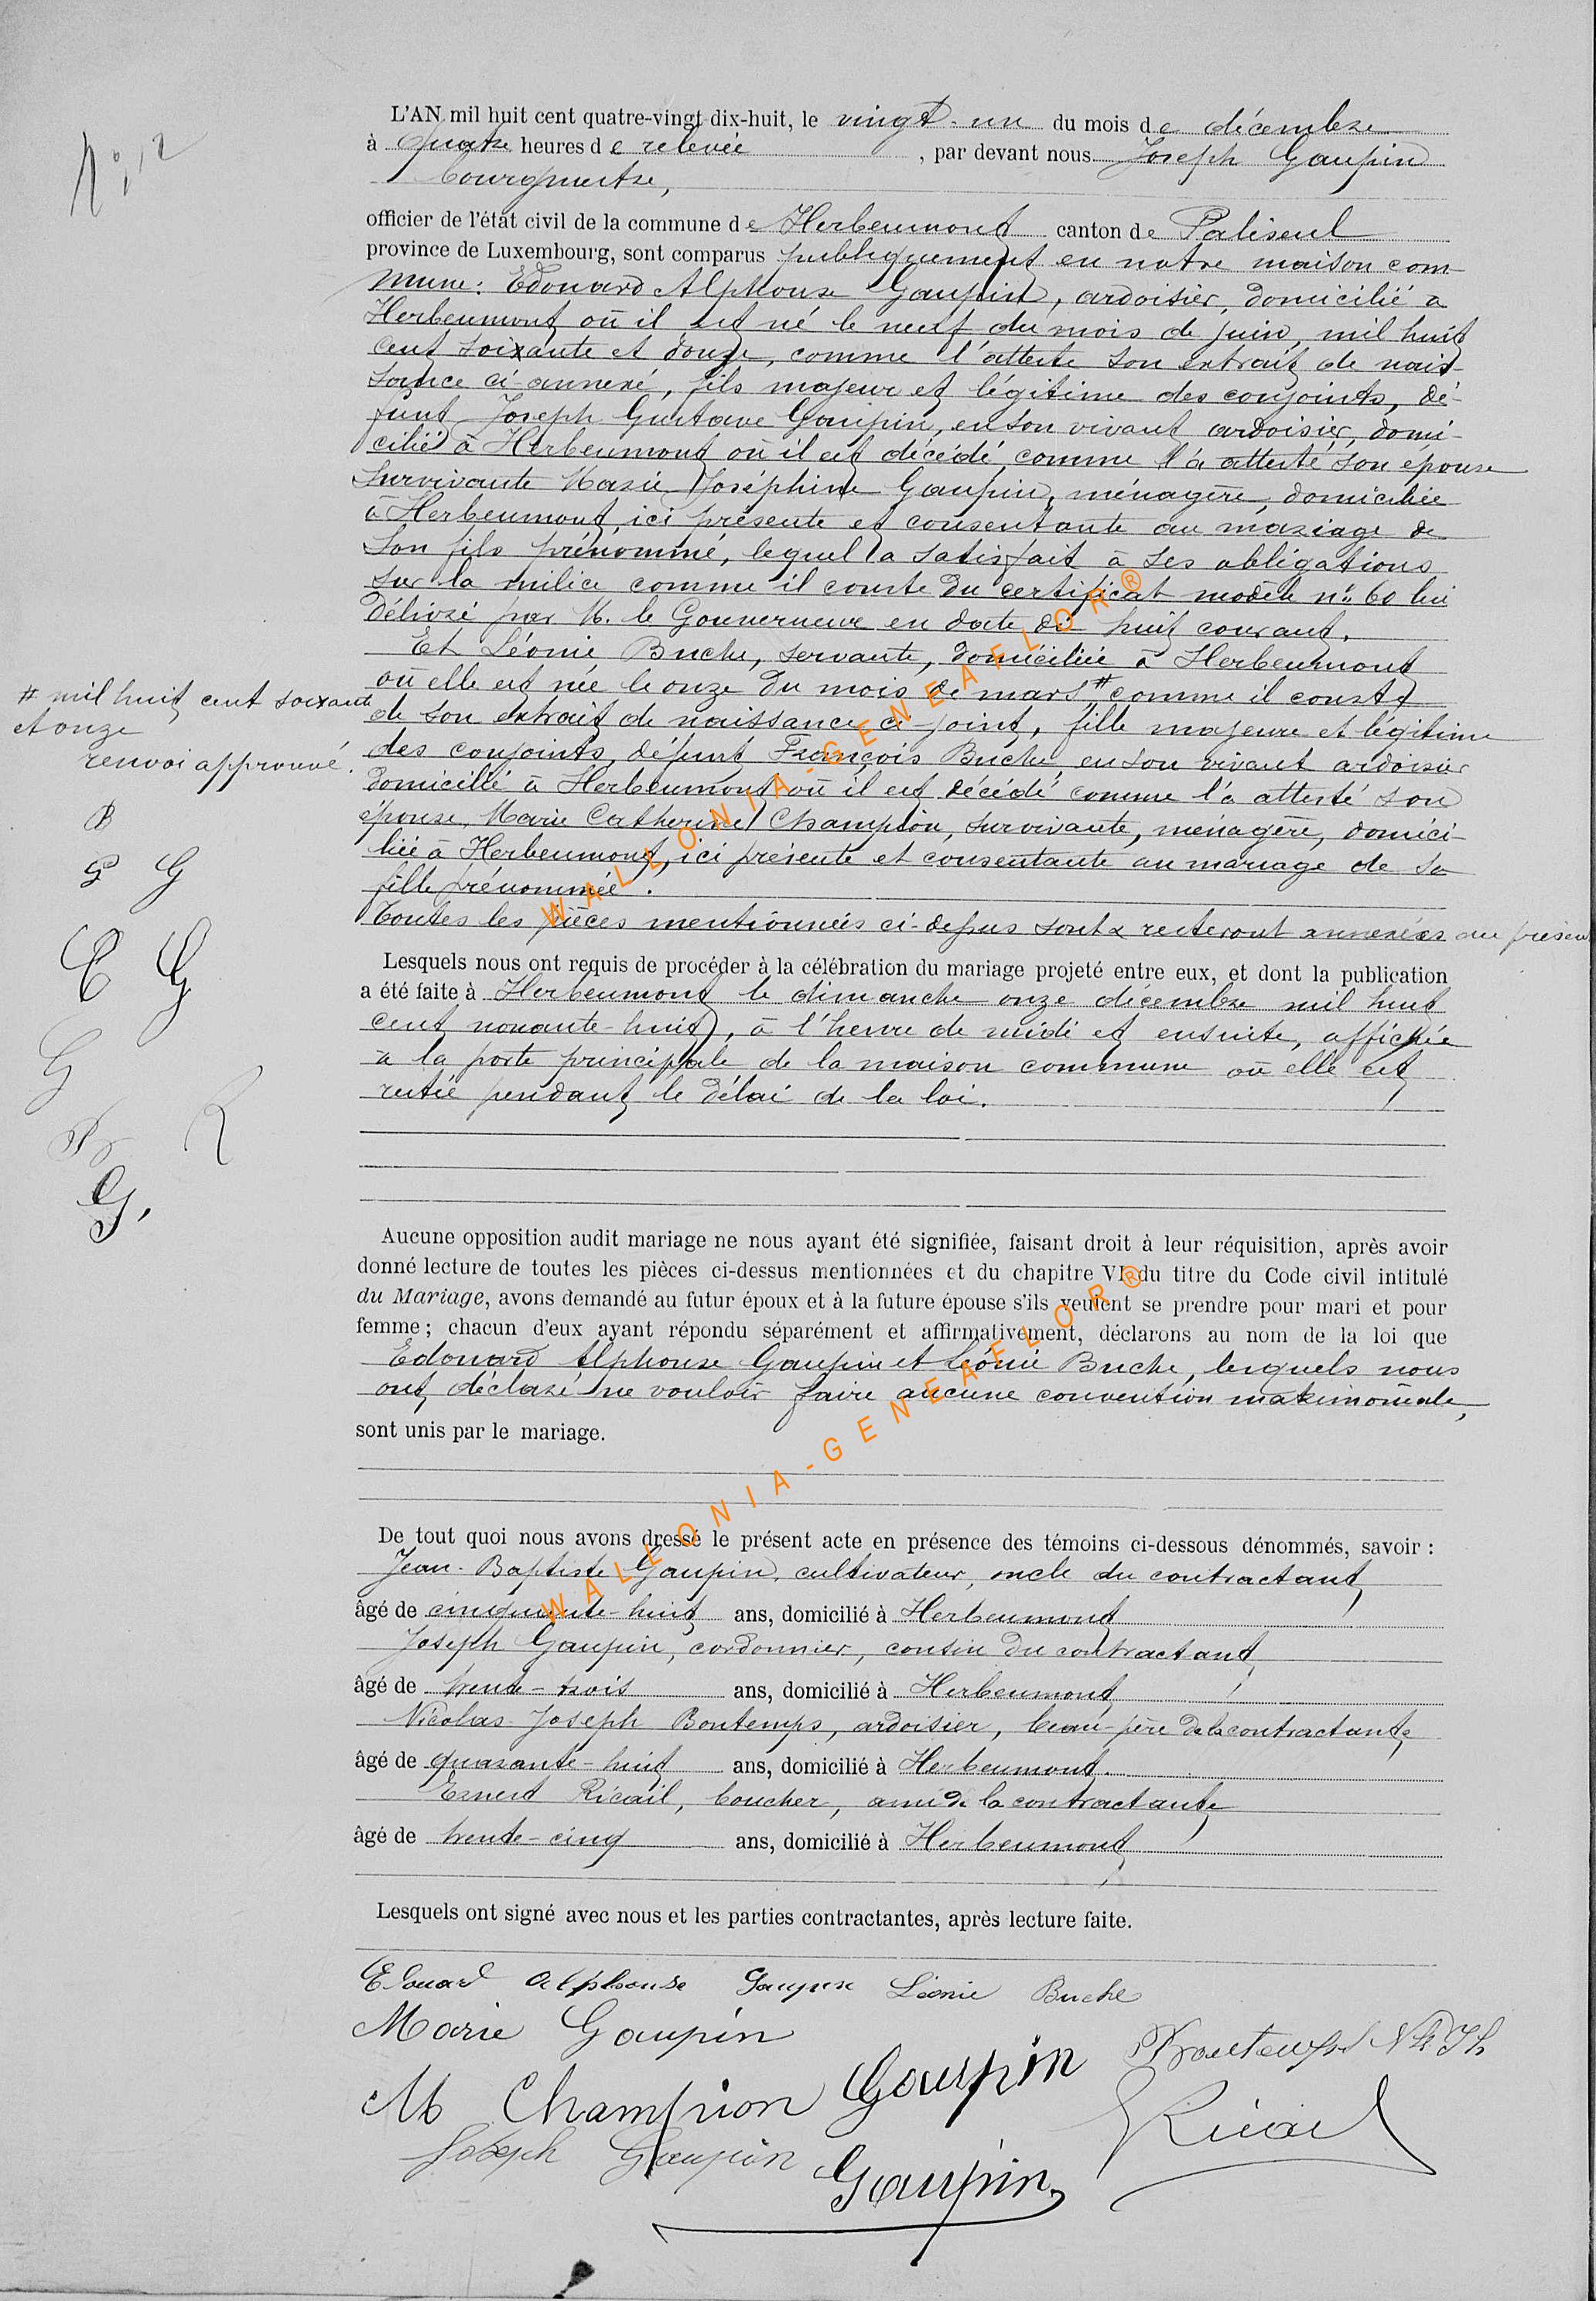 N° 12
L'AN mil huit cent quatre-vingt dix-huit, le vingt-un du mois de décembre
à quatre heures de relevée, par devant nous Joseph Gaupin
Bourgmestre,
officier de l'état civil de la commune de Herbeumont canton de Paliseul
province de Luxembourg, sont comparus publiquement en notre maison com-
mune: Edouard Alphonse Gaupin, ardoisier, domicilié à
Herbeumont où il est né le neuf du mois de juin, mil huit
cent soixante et douze, comme l'atteste son extrait de nais-
sance ci-annexé, fils majeur et légitime des conjoints, dé-
funt Joseph Gustave Gaupin, en son vivant ardoisier, domi-
cilié à Herbeumont où il est décédé, comme l'a attesté son épouse
survivante Marie Joséphine Gaupin, ménagère, domiciliée
à Herbeumont, ici présente et consentante au mariage de
son fils prénommé, lequel a satisfait à ses obligations
sur la milice comme il conste du certificat modèle n° 60 lui
délivré par M. le Gouverneur en date du huit courant.
Et Léonie Buche, servante, domiciliée à Herbeumont
où elle est née le onze du mois de mars # comme il conste
de son extrait de naissance ci-joint, fille majeure et légitime
des conjoints, défunt François Buche en son vivant ardoisier
domicilié à Herbeumont où il est décédé comme l'a attesté son
épouse, Marie Catherine Champion, survivante, ménagère, domici-
liée à Herbeumont, ici présente et consentante au mariage de sa
fille prénommée.
Toutes les pièces mentionnées ci-dessus sont & resteront annexées au présent
# mil huit cent soixante
et onze
renvoi approuvé.
B
G G
E G
G
B R
G.
Lesquels nous ont requis de procéder à la célébration du mariage projeté entre eux, et dont la publication
a été faite à Herbeumont le dimanche onze décembre mil huit
cent nonante-huit, à l'heure de midi et ensuite, affichée
à la porte principale de la maison commune où elle est
restée pendant le délai de la loi.
Aucune opposition audit mariage ne nous ayant été signifiée, faisant droit à leur réquisition, après avoir
donné lecture de toutes les pièces ci-dessus mentionnées et du chapitre VI du titre du Code civil intitulé
du Mariage, avons demandé au futur époux et à la future épouse s'ils veulent se prendre pour mari et pour
femme; chacun d'eux ayant répondu séparément et affirmativement, déclarons au nom de la loi que
Edouard Alphonse Gaupin et Léonie Buche, lesquels nous
ont déclaré ne vouloir faire aucune convention matrimoniale,
sont unis par le mariage.
De tout quoi nous avons dressé le présent acte en présence des témoins ci-dessous dénommés, savoir :
Jean-Baptiste Gaupin, cultivateur, oncle du contractant,
âgé de cinquante-huit ans, domicilié à Herbeumont
Joseph Gaupin, cordonnier, cousin du contractant,
âgé de trente-trois ans, domicilié à Herbeumont,
Nicolas Joseph Bontemps, ardoisier, beau-père de la contractante,
âgé de quarante-huit ans, domicilié à Herbeumont.
Ernest Ricail, boucher, ami de la contractante,
âgé de trente-cinq ans, domicilié à Herbeumont,
Lesquels ont signé avec nous et les parties contractantes, après lecture faite.
Edouard Alphonse Gaupin Léonie Buche
Marie Gaupin
Gaupin Bontemps Nas Jh
M Champion
Ricail
Joseph Gaupin
Gaupin
WALLONIA-GENEAFLOR®
WALLONIA-GENEAFLOR®